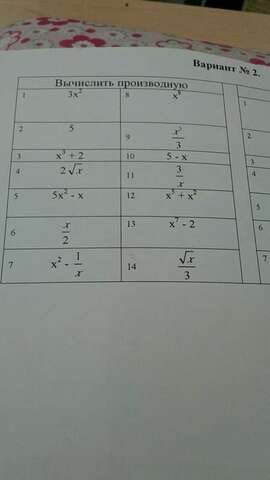 Вариант № 2.
Вычислить производную
1 3x² 8 x⁸
2 5 9 x³/3
3 x³ + 2 10 5 - x
4 2√x 11 3/x
5 5x² - x 12 x⁵ + x²
6 x/2 13 x⁷ - 2
7 x² - 1/x 14 √x/3
1
2
3
4
5
7